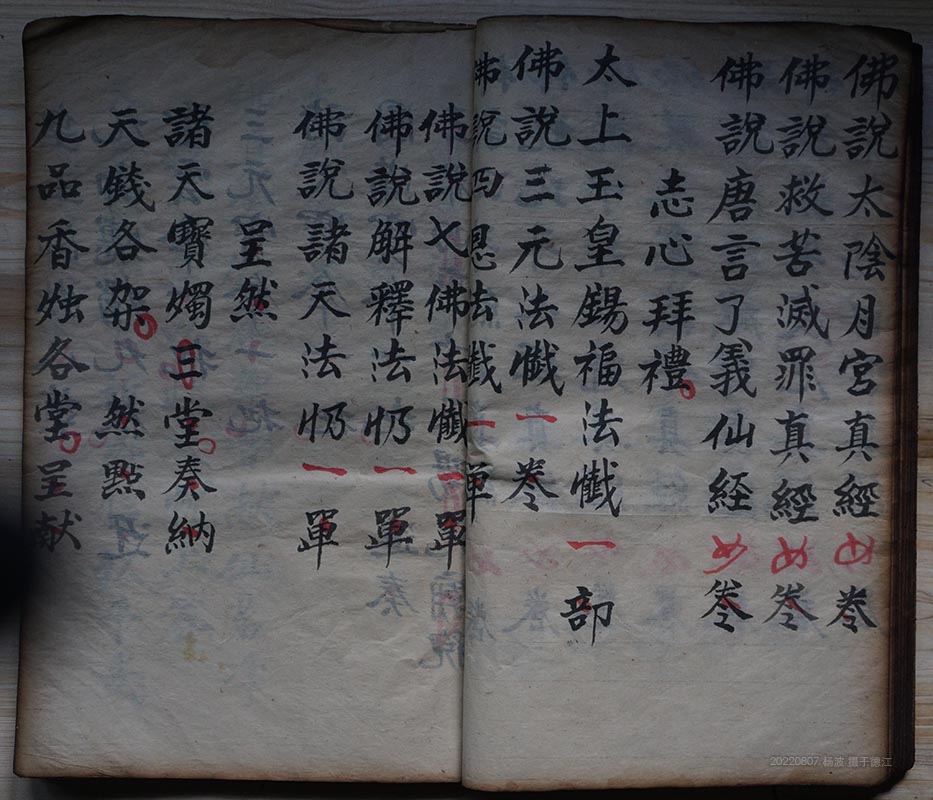 佛說太陰月宮真經卷
佛說救苦滅罪真經卷
佛說唐言了義仙経卷
志心拜禮
太上玉皇錫福法懺一部
佛說三元法懺一卷
佛說四恩法懺一単
佛說七佛法懺一單
佛說解釋法一單
佛說諸天法一單
呈然
諸天寶燭三堂奏納
天錢各架然㸃
九品香各堂呈献
20220807 杨波 摄于德江